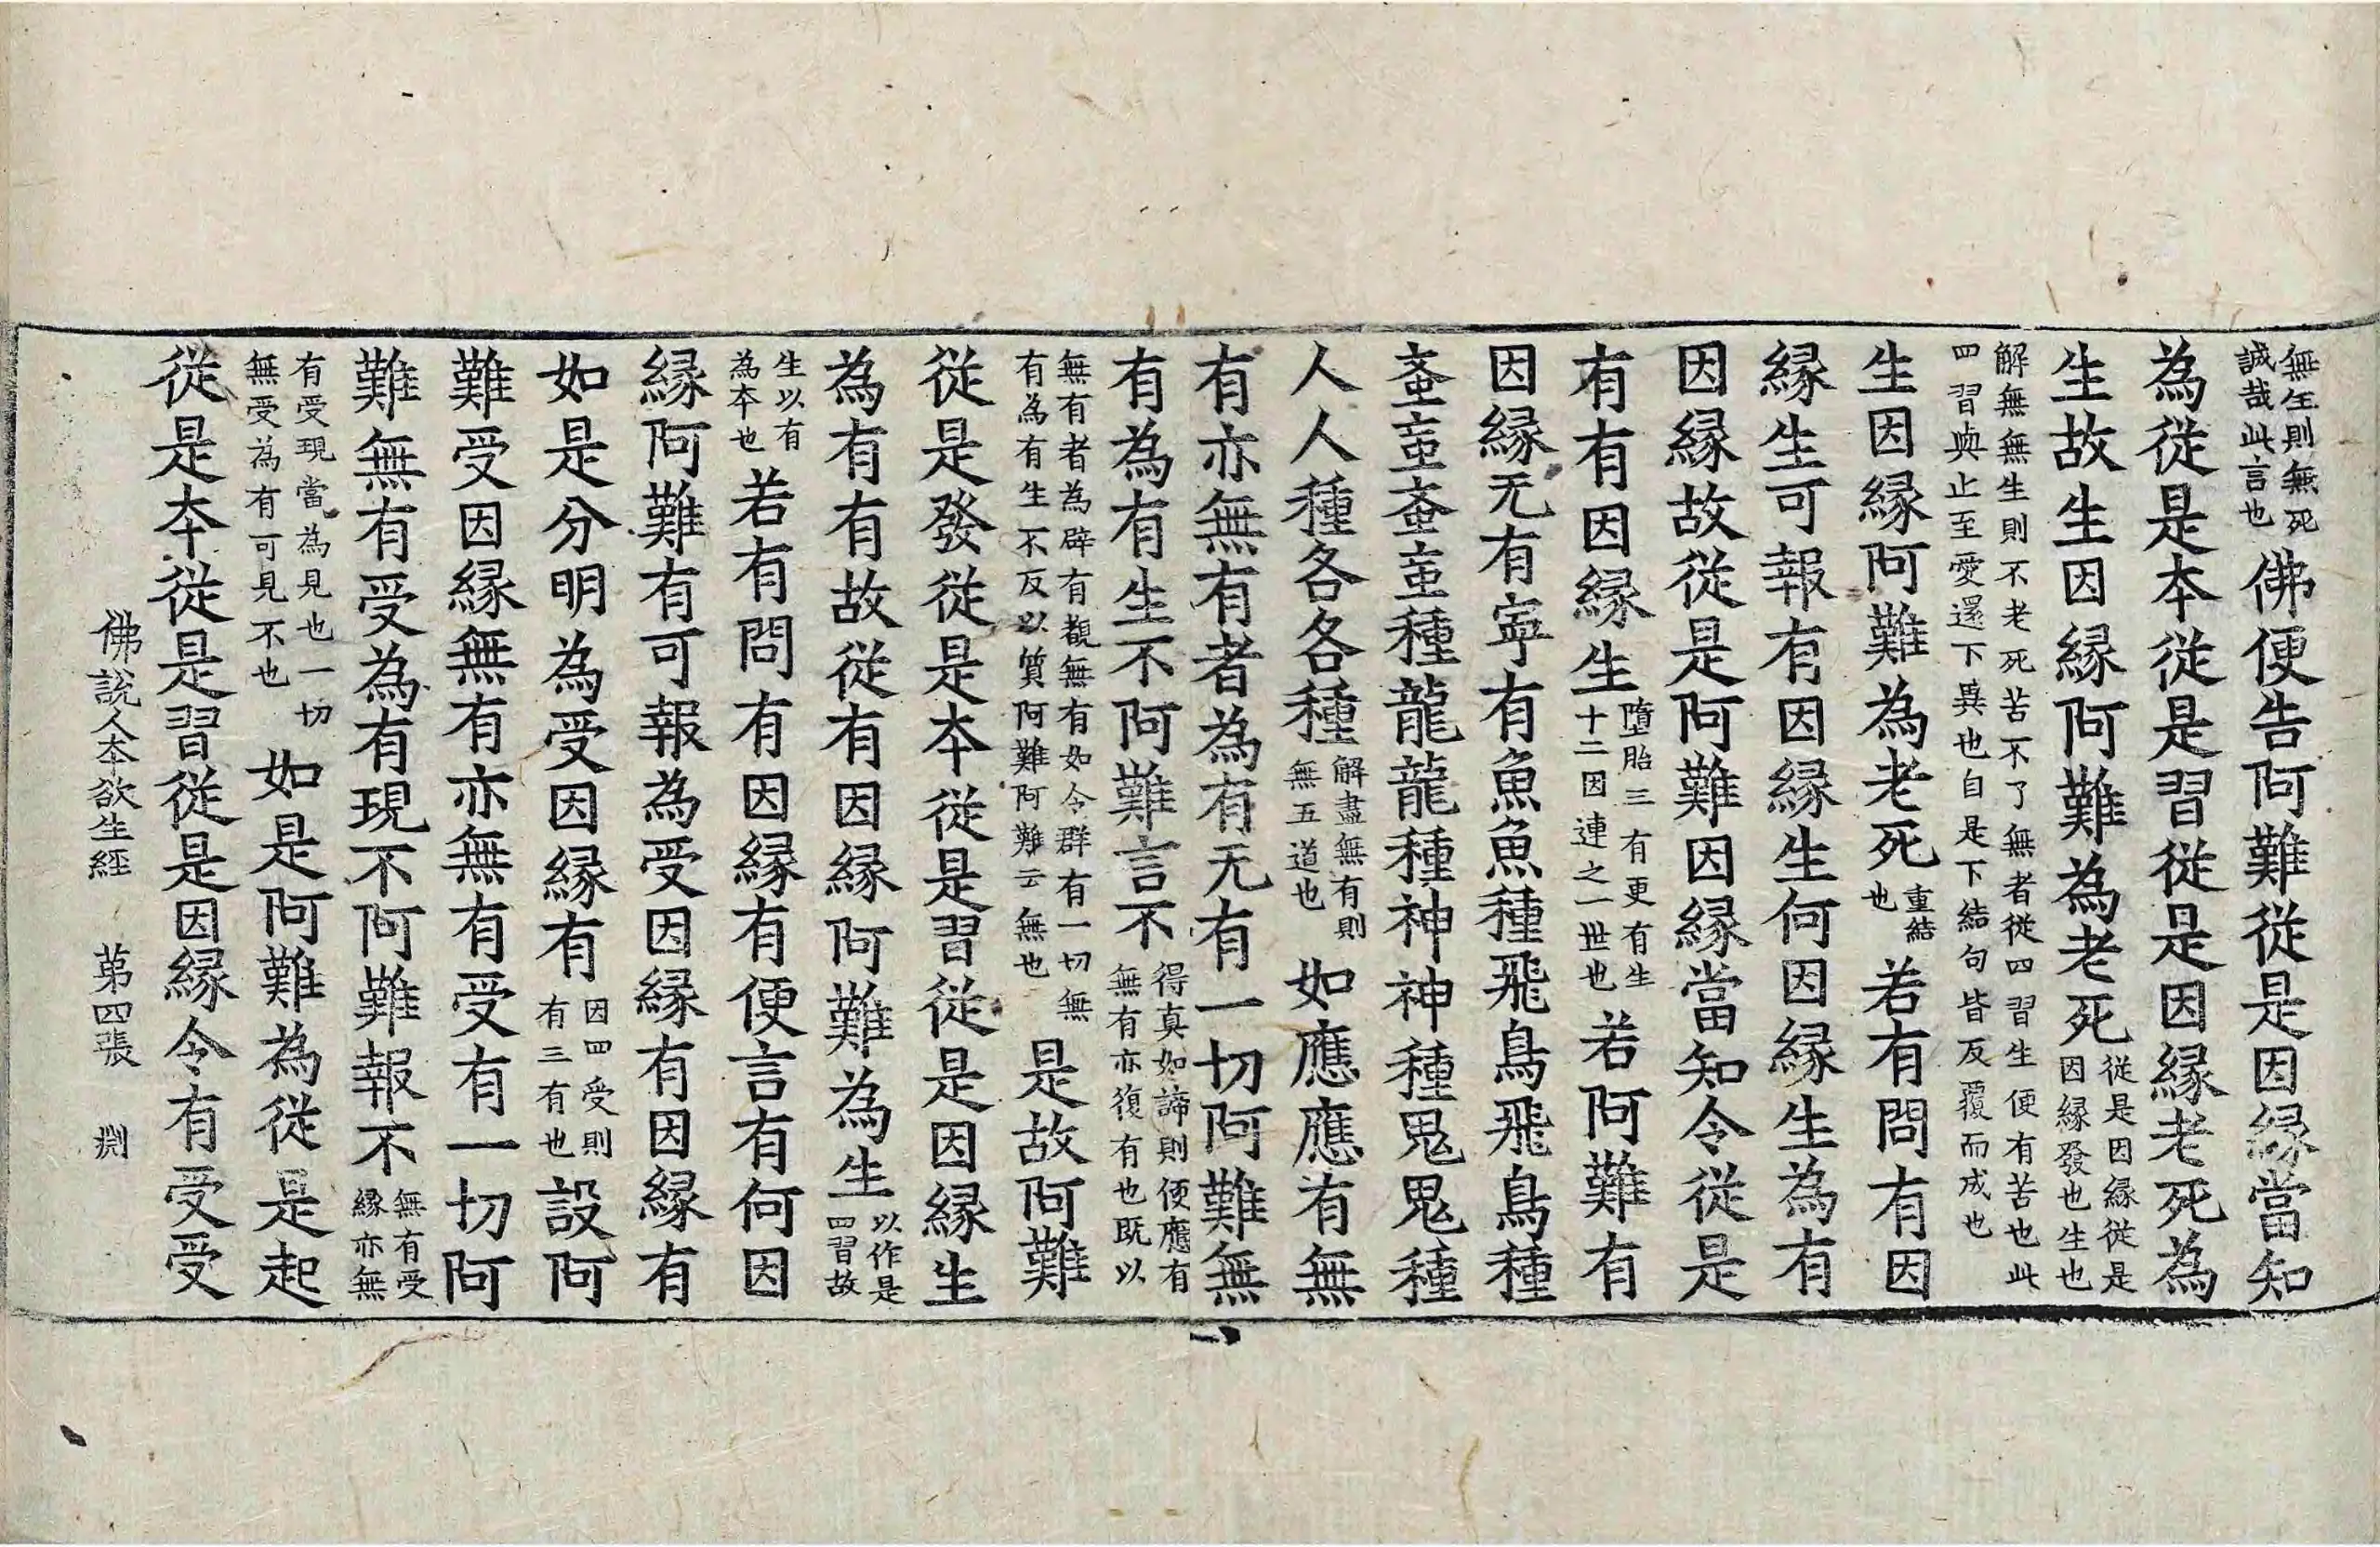 無生則無死誠哉此言也佛便告阿難從是因縁當知
為從是本從是習從是因縁老死為
生故生因縁阿難為老死從是因縁從是因縁發也生也
解無無生則不老死苦不了無者從四習生便有苦也此
四習典止至愛還下與也自是下結句皆反覆而成也
生因縁阿難為老死重結也若有問有因
縁生可報有因縁生何因縁生為有
因縁故從是阿難因縁當知令從是
有有因縁生墮胎三有更有生十二因連之一世也若阿難有
因縁无有寧有魚魚種飛鳥飛鳥種
蚉䖟蚉䖟種龍龍種神神種鬼鬼種
人人種各各種解盡無有則無五道也如應應有無
有亦無有者為有无有一切阿難無
有為有生不阿難言不得真如諦則便應有無有亦復有也既以
無有者為辟有覩無有如令群有一切無有為有生不反以質阿難阿難云無也是故阿難
從是發從是本從是習從是因縁生
為有有故從有因縁阿難為生以作是四習故
生以有為本也若有問有因縁有便言有何因
縁阿難有可報為受因縁有因縁有
如是分明為受因縁有因四受則有三有也設阿
難受因縁無有亦無有受有一切阿
難無有受為有現不阿難報不無有受縁亦無
有受現當為見也一切無受為有可見不也如是阿難為從是起
從是本從是習從是因縁令有受受
佛說人本欲生經 第四張 渕